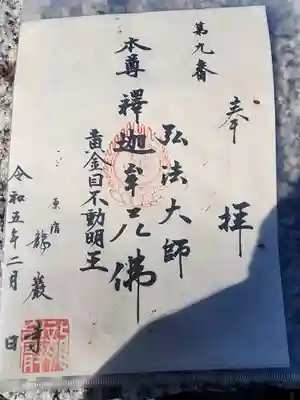 奉拝
第九番
弘法大師
本尊釋迦牟尼佛
黄金目不動明王
龍巖寺
令和五年二月 日